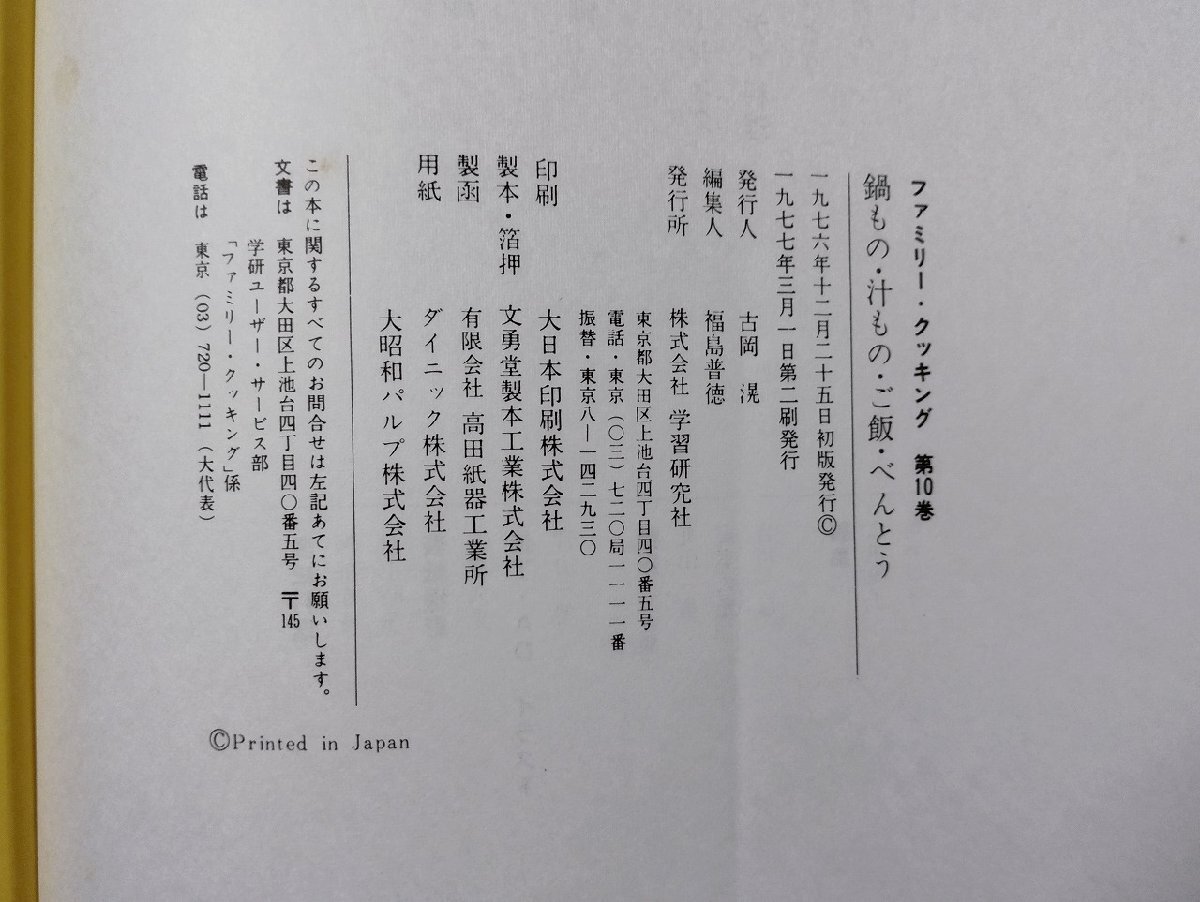 ファミリー・クッキング 第10巻
鍋もの・汁もの・ご飯・べんとう
一九七六年十二月二十五日初版発行©
一九七七年三月一日第二刷発行
発行人 古岡 滉
編集人 福島普徳
発行所 株式会社 学習研究社
東京都大田区上池台四丁目四〇番五号
電話・東京(〇三)七二〇局一一一一番
振替・東京八―一四二九三〇
印刷 大日本印刷株式会社
製本・箔押 文勇堂製本工業株式会社
製函 有限会社 高田紙器工業所
用紙 ダイニック株式会社
大昭和パルプ株式会社
この本に関するすべてのお問合せは左記あてにお願いします。
文書は 東京都大田区上池台四丁目四〇番五号 〒145
学研ユーザー・サービス部
「ファミリー・クッキング」係
電話は 東京(03)720―1111(大代表)
©Printed in Japan